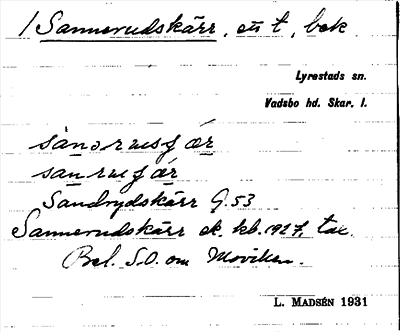 / Sannerudskärr, ett, bek
Lyrestads sn.
Vadsbo hd. Skar. l.
Sandrydskärr G. 53
Sannerudskärr ek. kb. 1927, tax.
Bel. S.O. om Moviken.
L. MADSÉN 1931